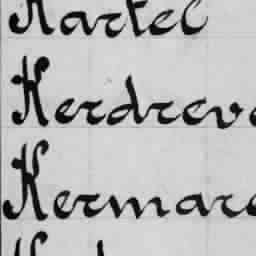 Martel
Kerdreve
Kermare